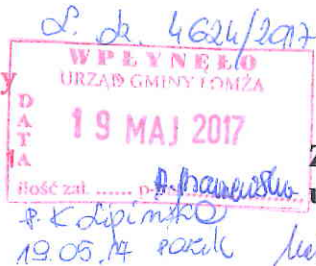 L. dz. 4624/2017
WPŁYNĘŁO
URZĄD GMINY ŁOMŻA
DATA
19 MAJ 2017
ilość zał. ......
P. K Lipińska
19.05.17